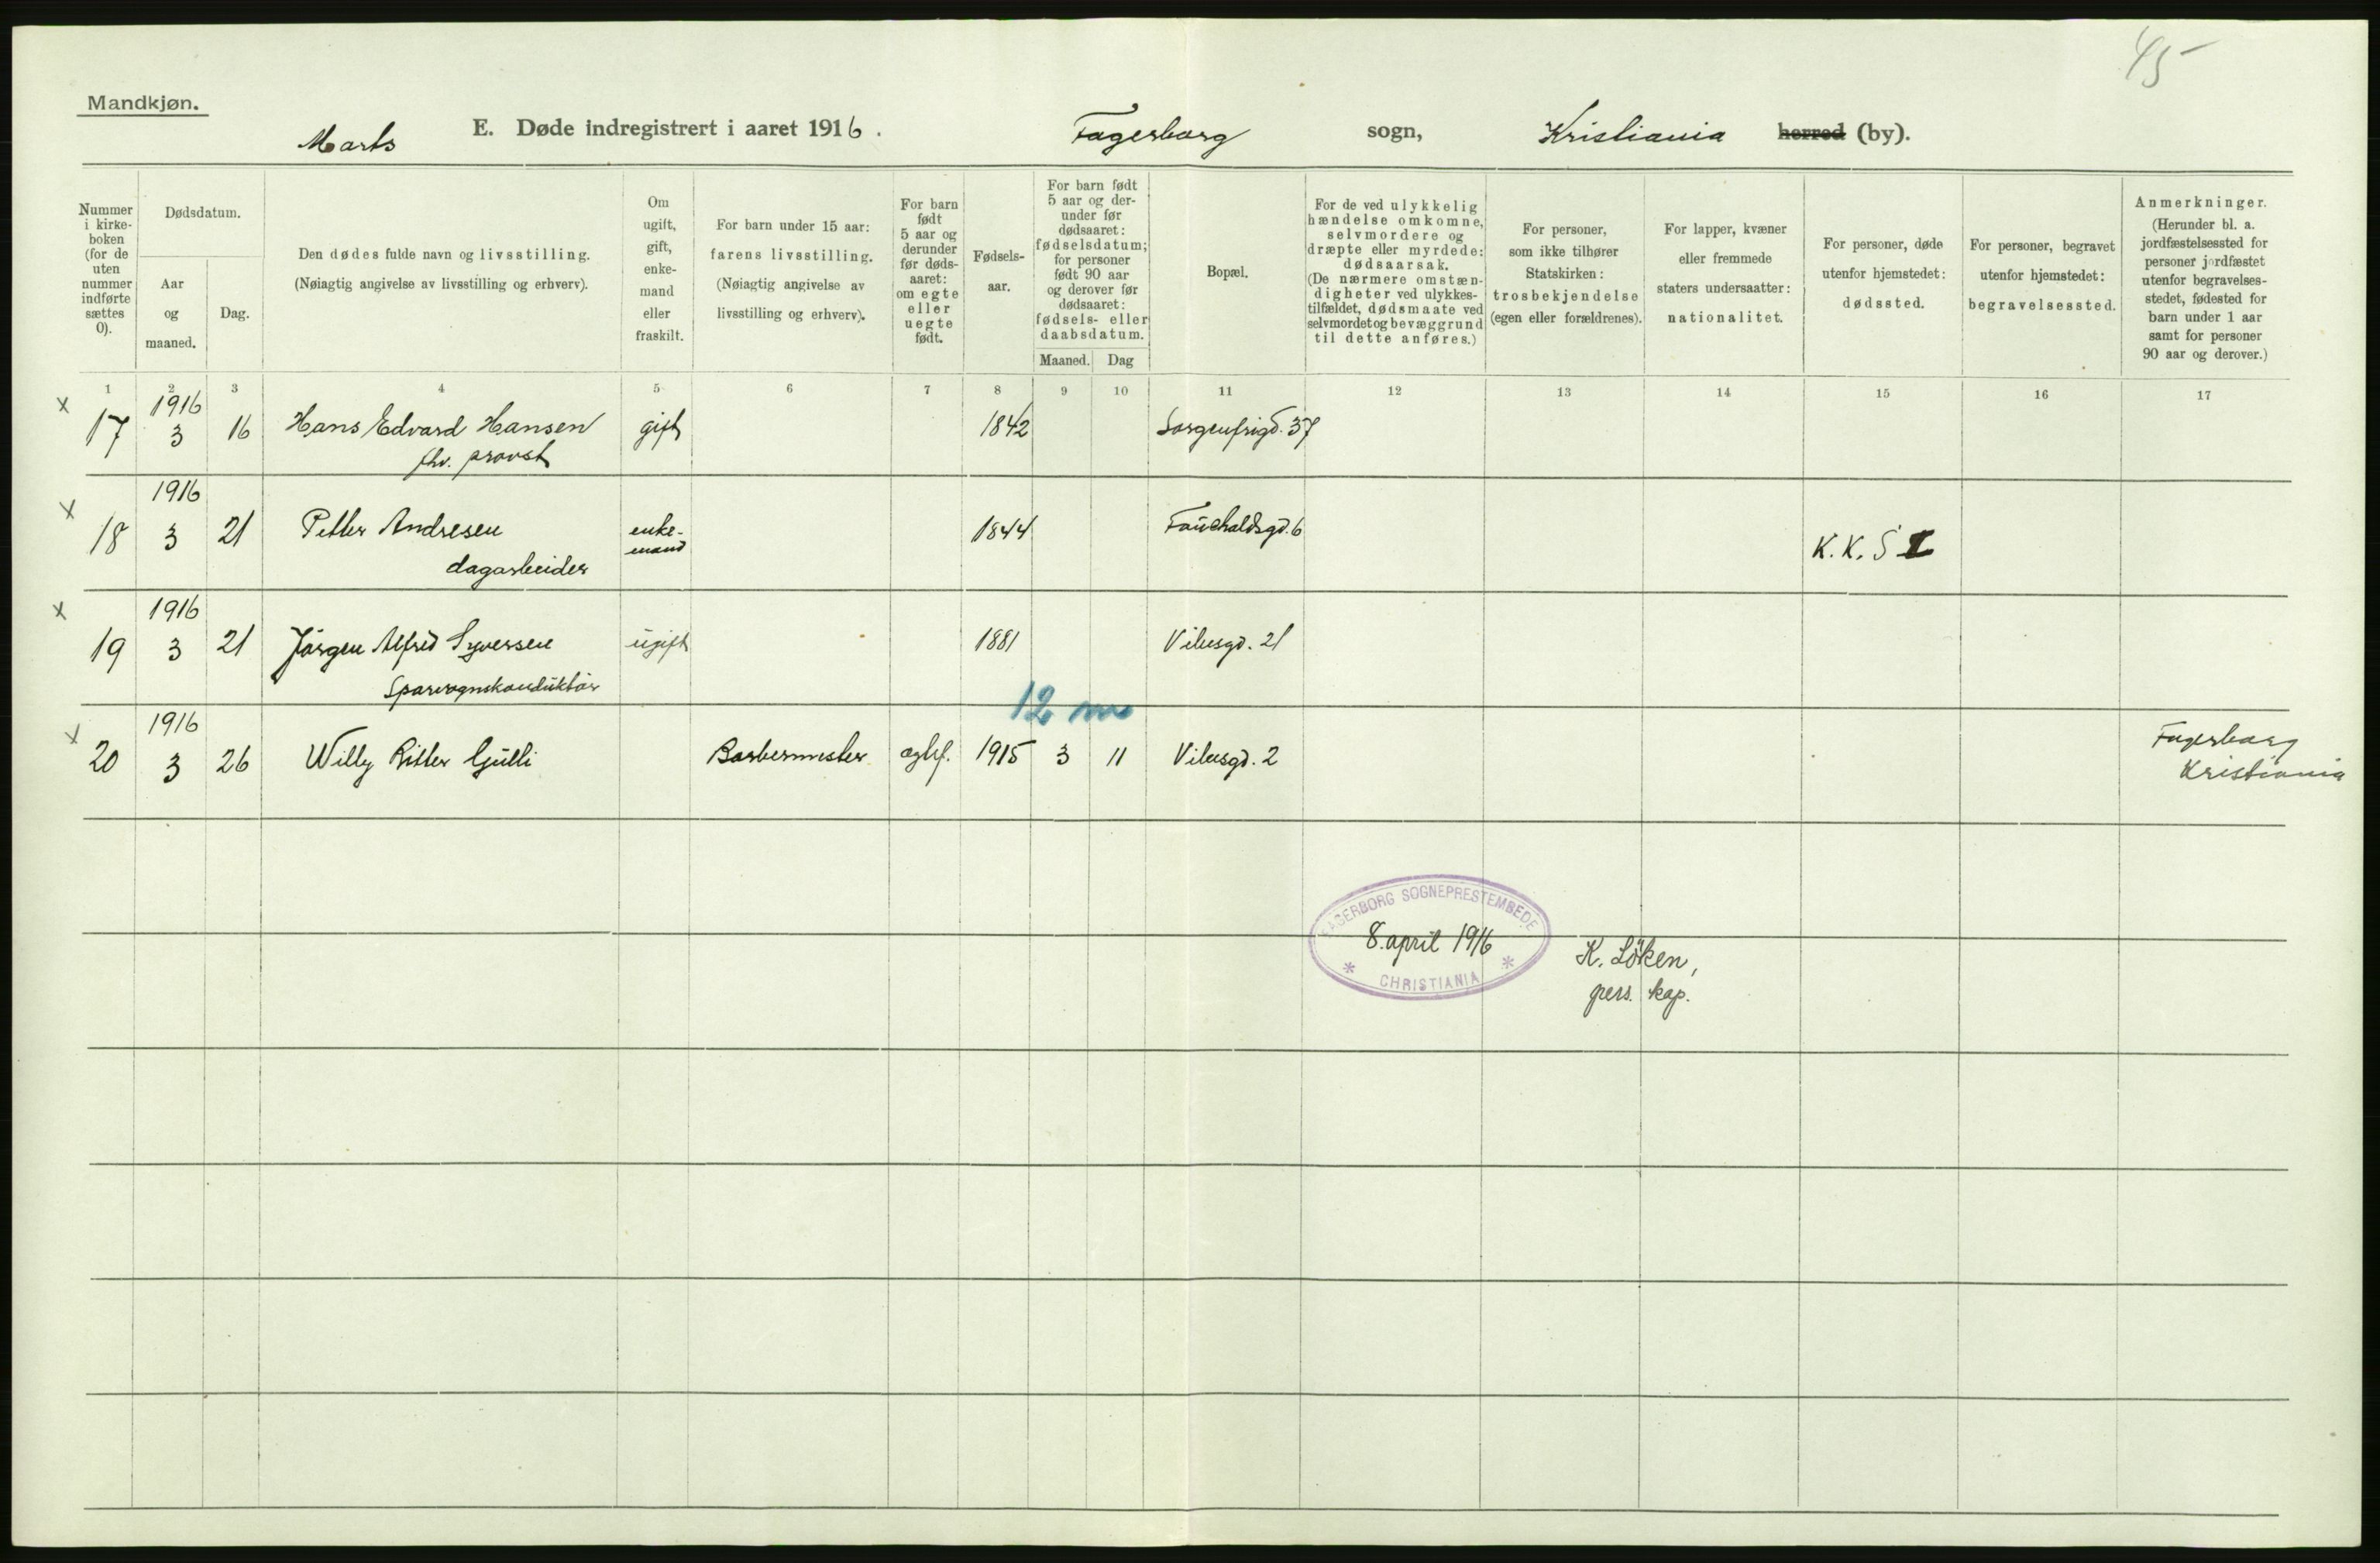 45
Mandkjøn.
Marts E. Døde indregistrert i aaret 1916. Fagerborg sogn, Kristiania herred (by).
Nummer i kirke-boken (for de uten nummer indførte sættes 0).
Dødsdatum.
Aar og maaned.
Dag.
Den dødes fulde navn og livsstilling.
(Nøiagtig angivelse av livsstilling og erhverv).
Om ugift, gift, enke-mand eller fraskilt.
For barn under 15 aar: farens livsstilling.
(Nøiagtig angivelse av livsstilling og erhverv).
For barn født 5 aar og derunder før døds-aaret: om egte eller uegte født.
Fødsels-aar.
For barn født 5 aar og der-under før dødsaaret: fødselsdatum; for personer født 90 aar og derover før dødsaaret: fødsels- eller daabsdatum.
Maaned. Dag
Bopæl.
For de ved ulykkelig hændelse omkomne, selvmordere og dræpte eller myrdede: dødsaarsak.
(De nærmere omstæn-digheter ved ulykkes-tilfældet, dødsmaate ved selvmordet og bevæggrund til dette anføres.)
For personer, som ikke tilhører Statskirken: trosbekjendelse (egen eller forældrenes).
For lapper, kvæner eller fremmede staters undersaatter: nationalitet.
For personer, døde utenfor hjemstedet: dødssted.
For personer, begravet utenfor hjemstedet: begravelsessted.
Anmerkninger.
(Herunder bl. a. jordfæstelsessted for personer jordfæstet utenfor begravelses-stedet, fødested for barn under 1 aar samt for personer 90 aar og derover.)
1 2 3 4 5 6 7 8 9 10 11 12 13 14 15 16 17
x 1916
17 3 16 Hans Edvard Hansen gift 1842 Sorgenfrigd. 37
fhv. provst
x 1916
18 3 21 Petter Andresen enke-mand 1844 Fauchaldsgd. 6 K. K. S
dagarbeider
x 1916
19 3 21 Jörgen Alfred Syversen ugift 1881 Vibesgd. 21
Sporvognskonduktör
12 m
x 1916
20 3 26 Willy Ritter Gulli Barbermester egtef. 1915 3 11 Vibesgd. 2 Fagerborg
Kristiania
FAGERBORG SOGNEPRESTEMBEDE
8. april 1916
* CHRISTIANIA *
K. Löken,
pers. kap.